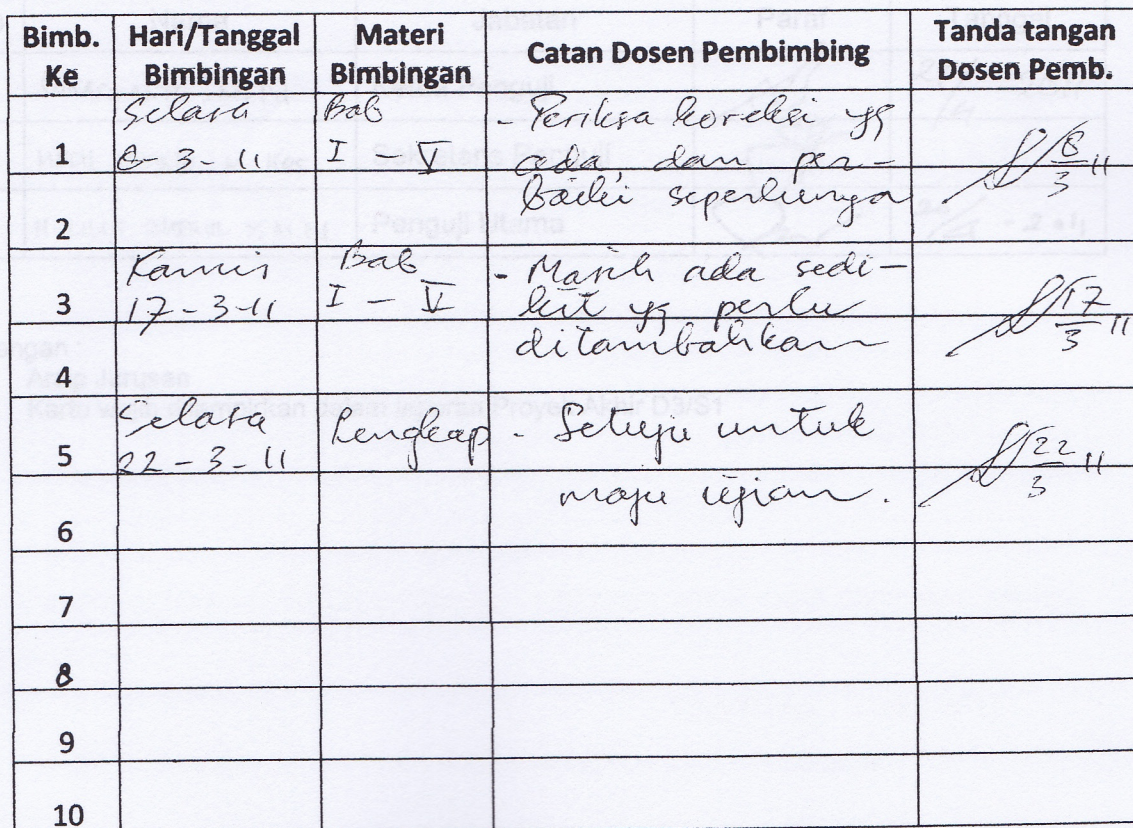 Bimb. Ke Hari/Tanggal Bimbingan Materi Bimbingan Catan Dosen Pembimbing Tanda tangan Dosen Pemb.
1 Selasa 8-3-11 Bab I V - Periksa koreksi yg ada, dan per-baiki seperlunya. 8/3 11
2
3 Kamis 17-3-11 Bab I - V - Masih ada sedi-kit yg perlu ditambahkan 17/3 11
4
5 Selasa 22-3-11 Lengkap - Setuju untuk maju ujian. 22/3 11
6
7
8
9
10
Nama Jabatan Paraf Tanggal
Sekretaris Penguji
Penguji Utama